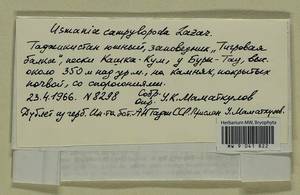 Usmania campylopoda Lazar.
Таджикистан южный, заповедник „Тигровая
балка", пески Кашка-Кум, у Бурк-Тау, выс.
около 350 м над ур. м., на камнях, покрытых
почвой, со спорогониями.
23.4.1966. N 8298 Собр. Опр. У.К. Маматкулов
Дублет из герб. Ин-та бот. АН Тадж ССР. Прислан У. Маматкулов.
Herbarium MW, Bryophyta
MW 9 041 822